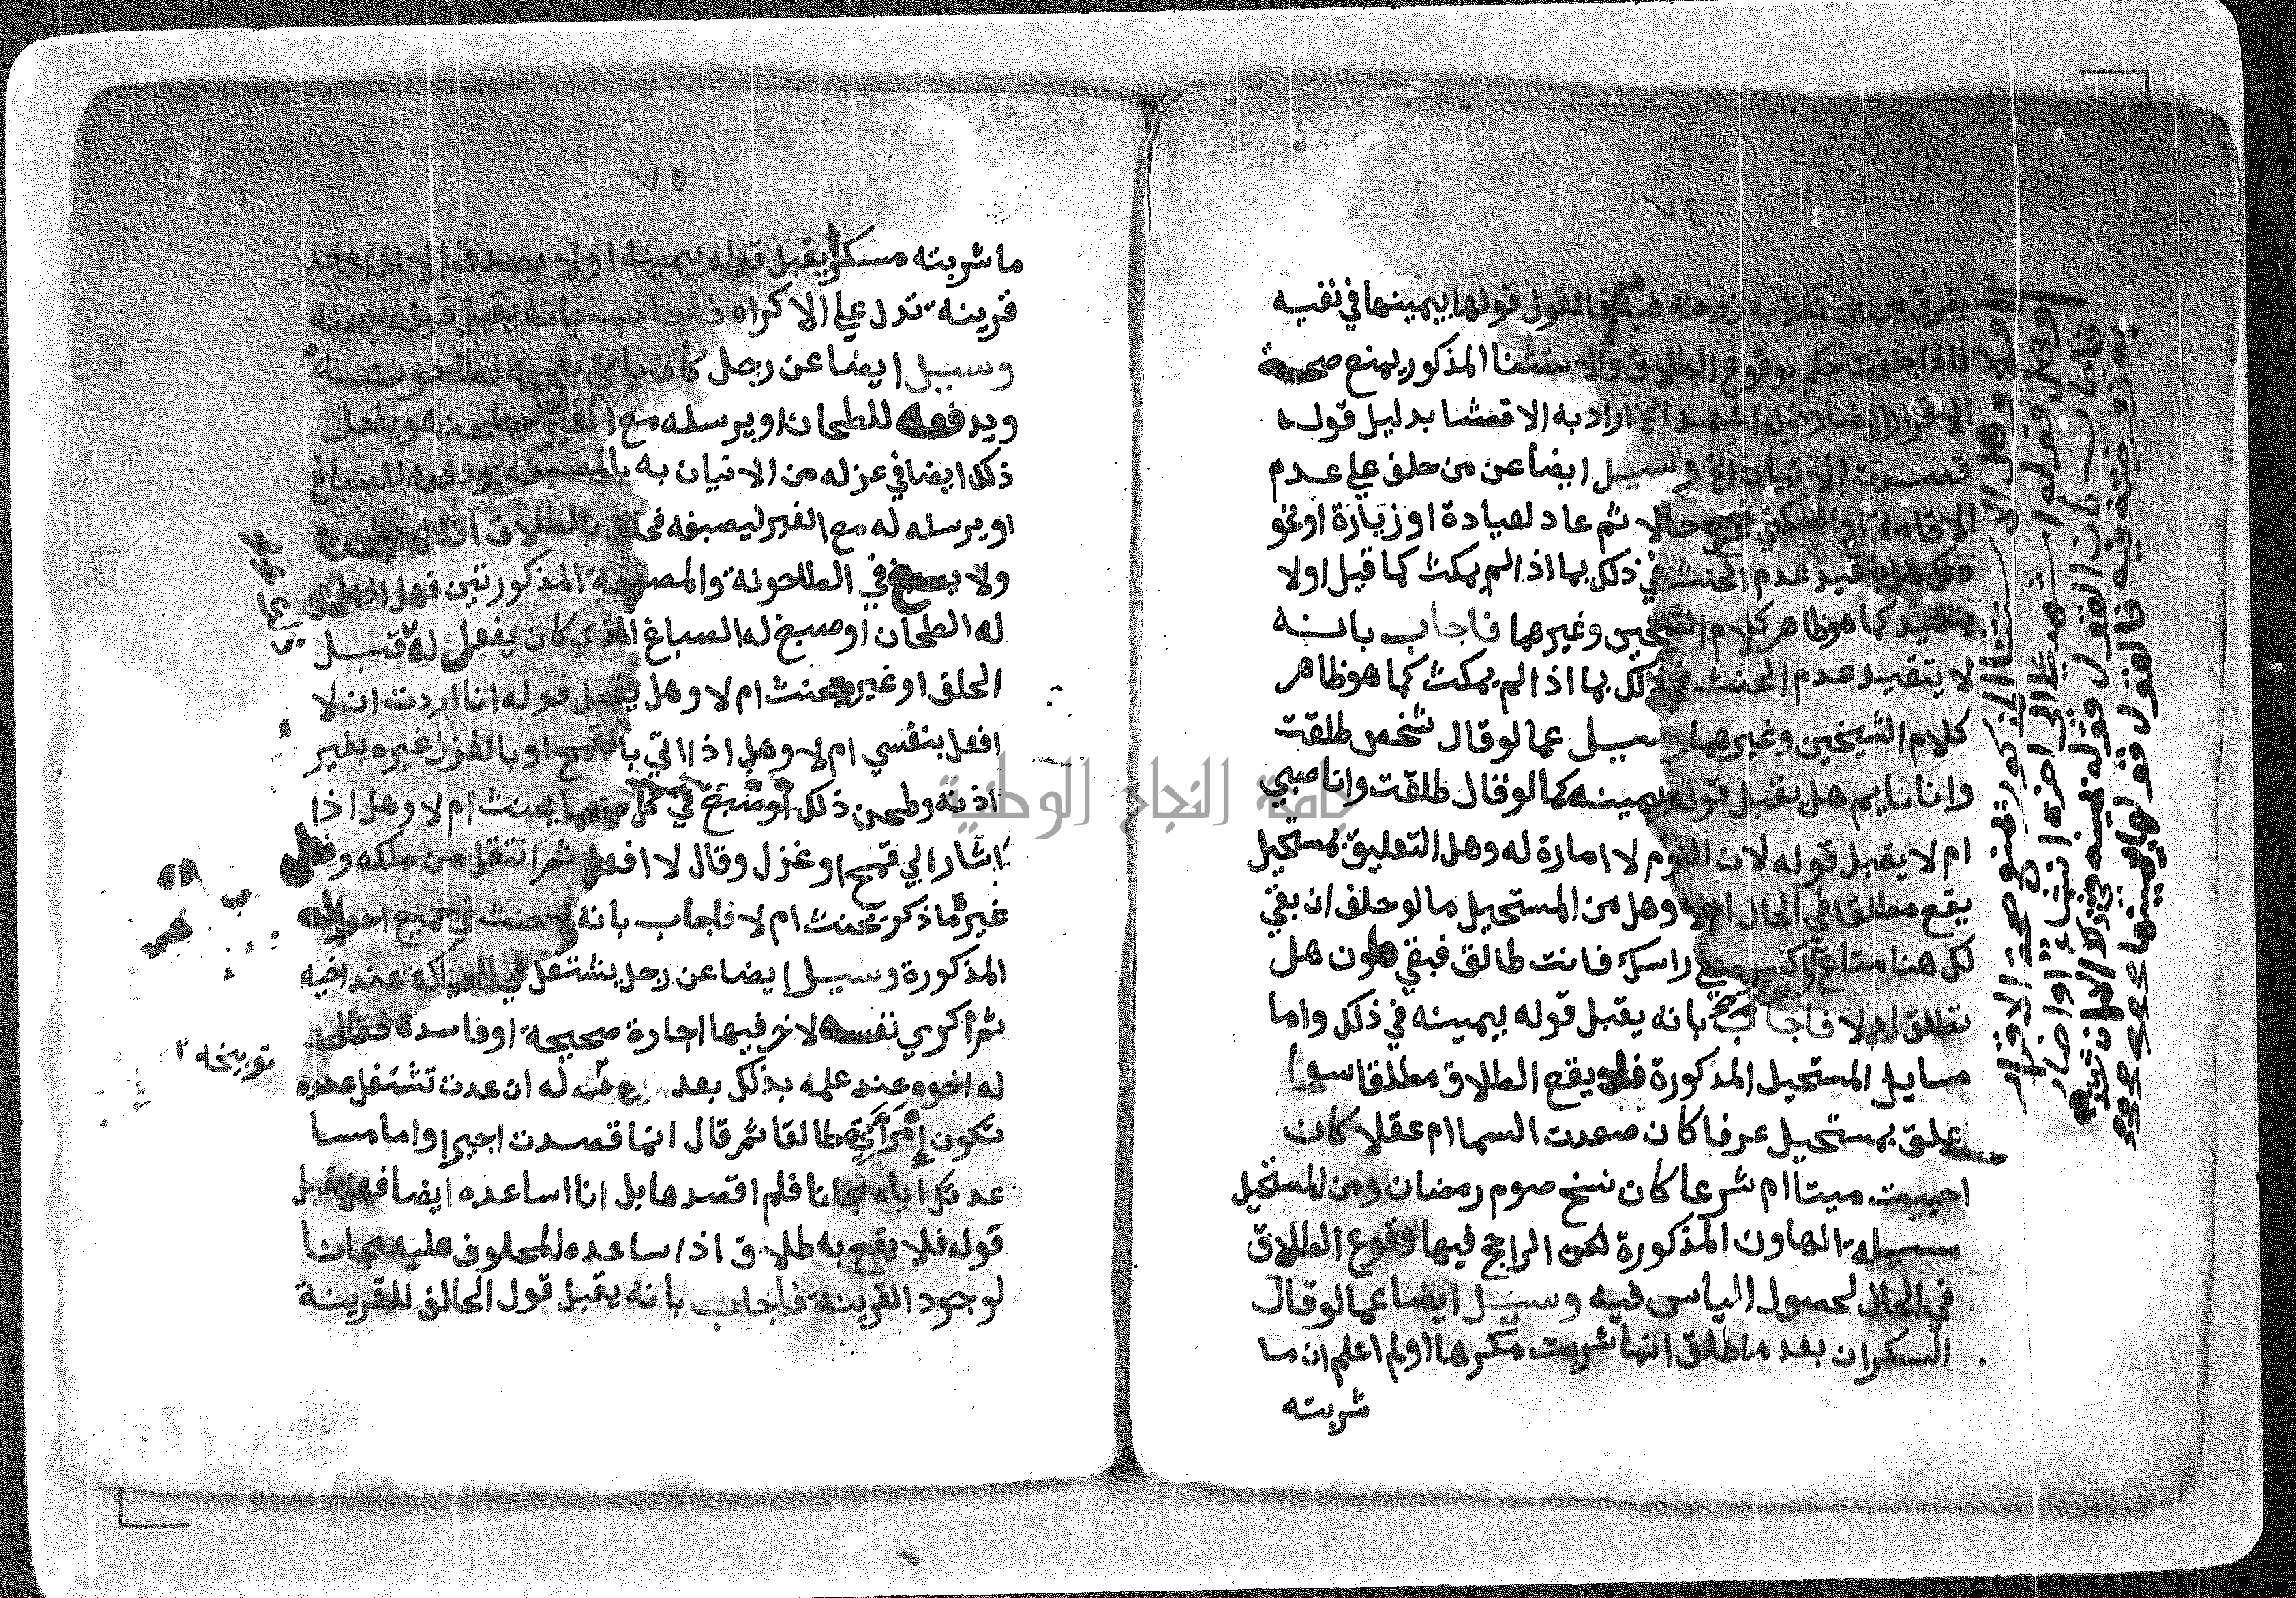 ٧٤
يفرق بين ان تكذبه زوجته فيه فالقول قولها بيمينها في نفيه
فاذا حلفت حكم بوقوع الطلاق والاستثنا المذكور يمنع صحة
الاقرار ايضا وقوله اشهد الخ اراد به الا قصشا بدليل قوله
قصدت الاتيان الخ وسيل ايضا عن من حلق علي عدم
الاقامة او السكني حالا ثم عاد لعيادة او زيارة او نحو
ذلك هل يتقيد عدم الحنث في ذلك بما اذا لم يمكث كما قيل اولا
يتقيد كما هو ظاهر كلام الشيخين وغيرهما فاجاب بانه
لا يتقيد عدم الحنث في ذلك بما اذا لم يمكث كما هو ظاهر
كلام الشيخين وغيرهما وسيل عما لو قال شخص طلقت
وانا نايم هل يقبل قوله بيمينه كما لو قال طلقت وانا صبي
ام لا يقبل قوله لان النوم لا امارة له وهل التعليق بمستحيل
يقع مطلقا في الحال ام لا وهل من المستحيل ما لو حلف ان بقي
لك هنا متاع اكسره علي راسك فانت طالق فبقي هاون هل
تطلق ام لا فاجاب بانه يقبل قوله بيمينه في ذلك واما
مسايل المستحيل المذكورة فلا يقع الطلاق مطلقا سوا
علق بمستحيل عرفا كان صعدت السما ام عقلا كان
احييت ميتا ام شرعا كان نسخ صوم رمضان ومن المستحيل
مسيلة الهاون المذكورة لكن الراجح فيها وقوع الطلاق
في الحال لحصول الياس فيه وسيل ايضا عما لو قال
السكران بعد ما طلق انما شربت مكرها او لم اعلم ان ما
شربته
اولا وهل الاستثنا المذكور يمنع صحة الاقرار
وهل قوله اشهد علي اخره انشاء او اخبار
فاجاب بان القول قوله بيمينه
٧٥
ما شربته مسكر ايقبل قوله بيمينه او لا يصدق الا اذا وجد
قرينة تدل علي الاكراه فاجاب بانه يقبل قوله بيمينه
وسيل ايضا عن رجل كان ياتي بقمحه لطاحونة
ويدفعه للطحان او يرسله مع الغير ليطحنه ويفعل
ذلك ايضا في عزله من الاتيان به بالمصبغة ودفعه للصباغ
او يرسله له مع الغير ليصبغه فحلف بالطلاق انه لا يطحن
ولا يصبغ في الطاحونة والمصبغة المذكورتين فهل اذا طحن
له الطحان او صبغ له الصباغ الذي كان يفعل له قبل
الحلق او غيره يحنث ام لا وهل يقبل قوله انا اردت ان لا
افعل بنفسي ام لا وهل اذا اتي بالقمح او بالغزل غيره بغير
اذنه وطحن ذلك او صبغ في كل منهما يحنث ام لا وهل اذا
اشار الي قمح او غزل وقال لا افعل ثم انتقل من ملكه وفعل
غيره ما ذكر يحنث ام لا فاجاب بانه لا حنث في جميع احواله
المذكورة وسيل ايضا عن رجل يشتغل في الحياكة عند اخيه
ثم اكري نفسه لاخر فيها اجارة صحيحة او فاسدة فقال
له اخوه عند علمه بذلك بعد له ان عدت تشتغل عنده
تكون امراتي طالقا ثم قال انما قصدت اجيرا واما مسا
عدتك اياه مجانا فلم اقصدها بل انا اساعده ايضا فهل يقبل
قوله فلا يقع به طلاق اذا ساعده المحلوف عليه مجانا
لوجود القرينة فاجاب بانه يقبل قول الحالف للقرينة
توبيخه
جامعة النجاح الوطنية